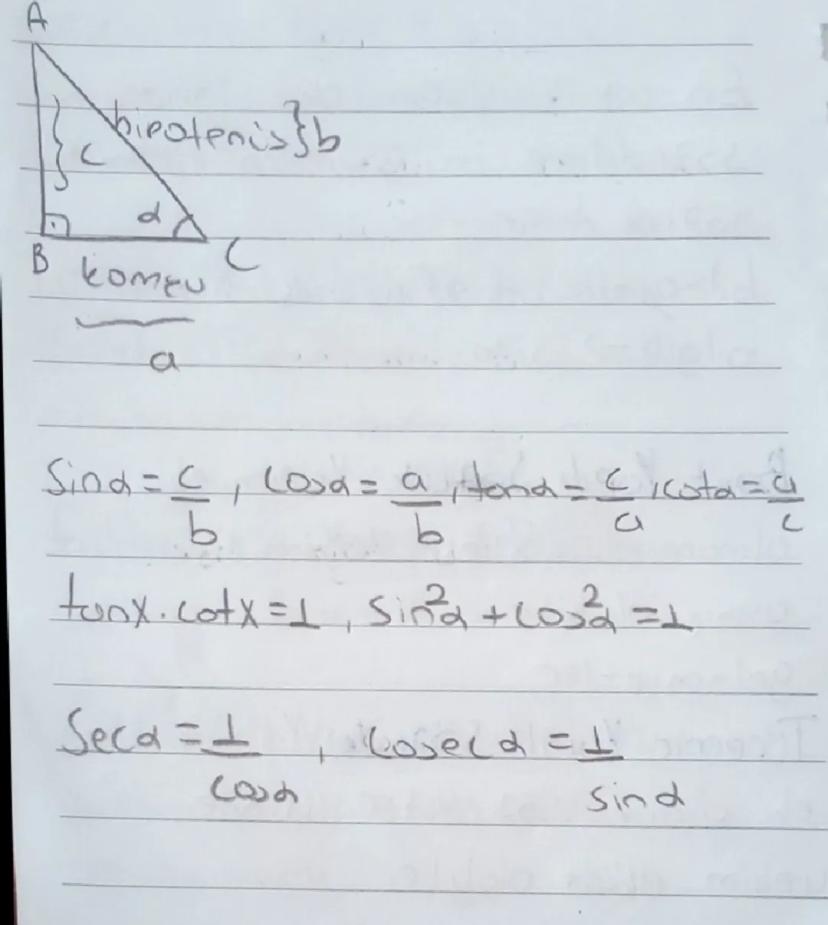 A
hipotenis}b
c
α
B
C
komşu
a
Sinα = c/b, cosα = a/b, tanα = c/a, cotα = a/c
tanx.cotx=1, sin²α + cos²α = 1
Secα = 1/cosα, cosecα = 1/sinα